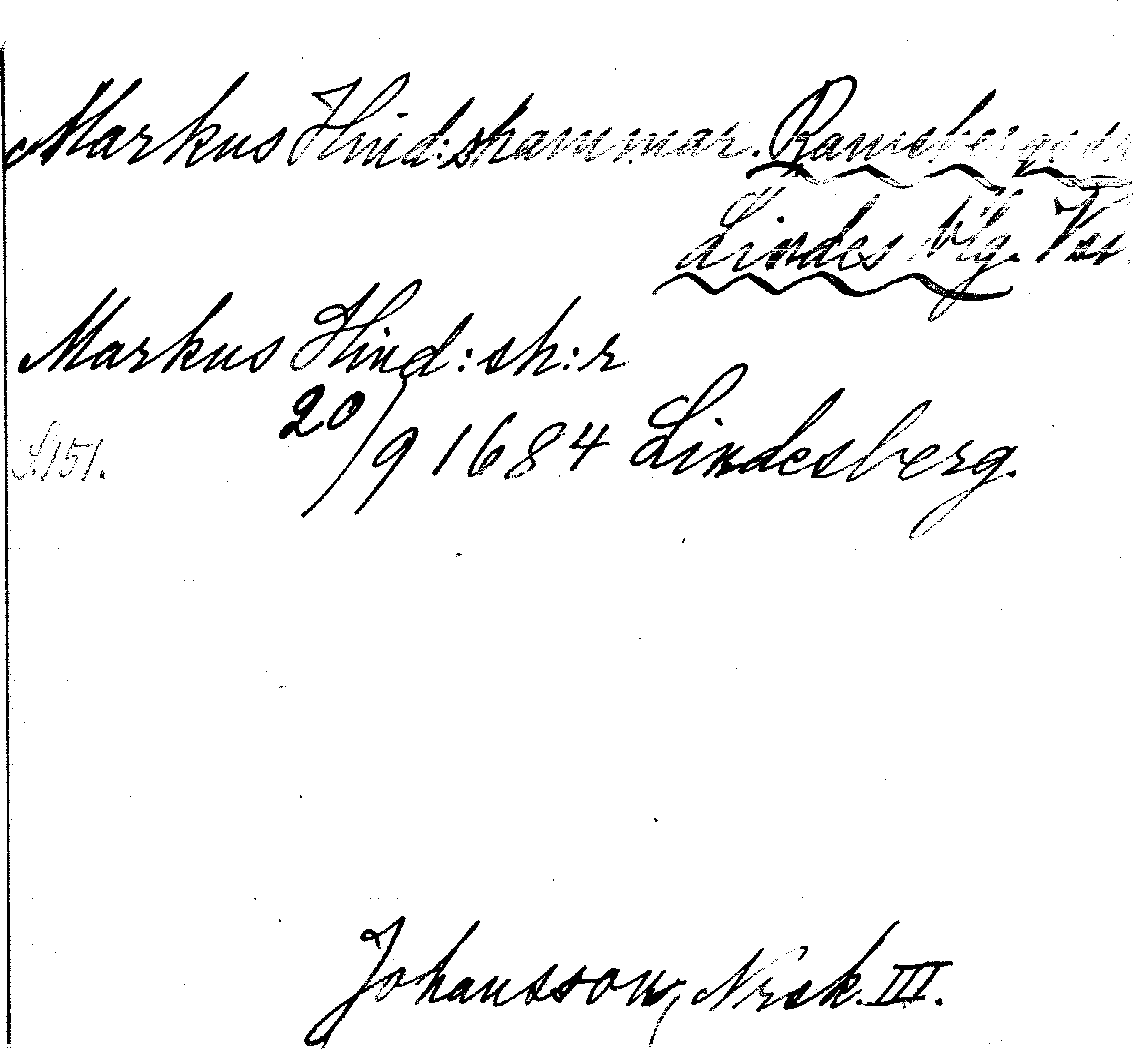 Markus Hind:shammar. Ramsbergs sn
Lindes blg. Vsm.
Markus Hind:sh:r
20/9 1684 Lindesberg.
S. 151.
Johansson, Nrsk. III.